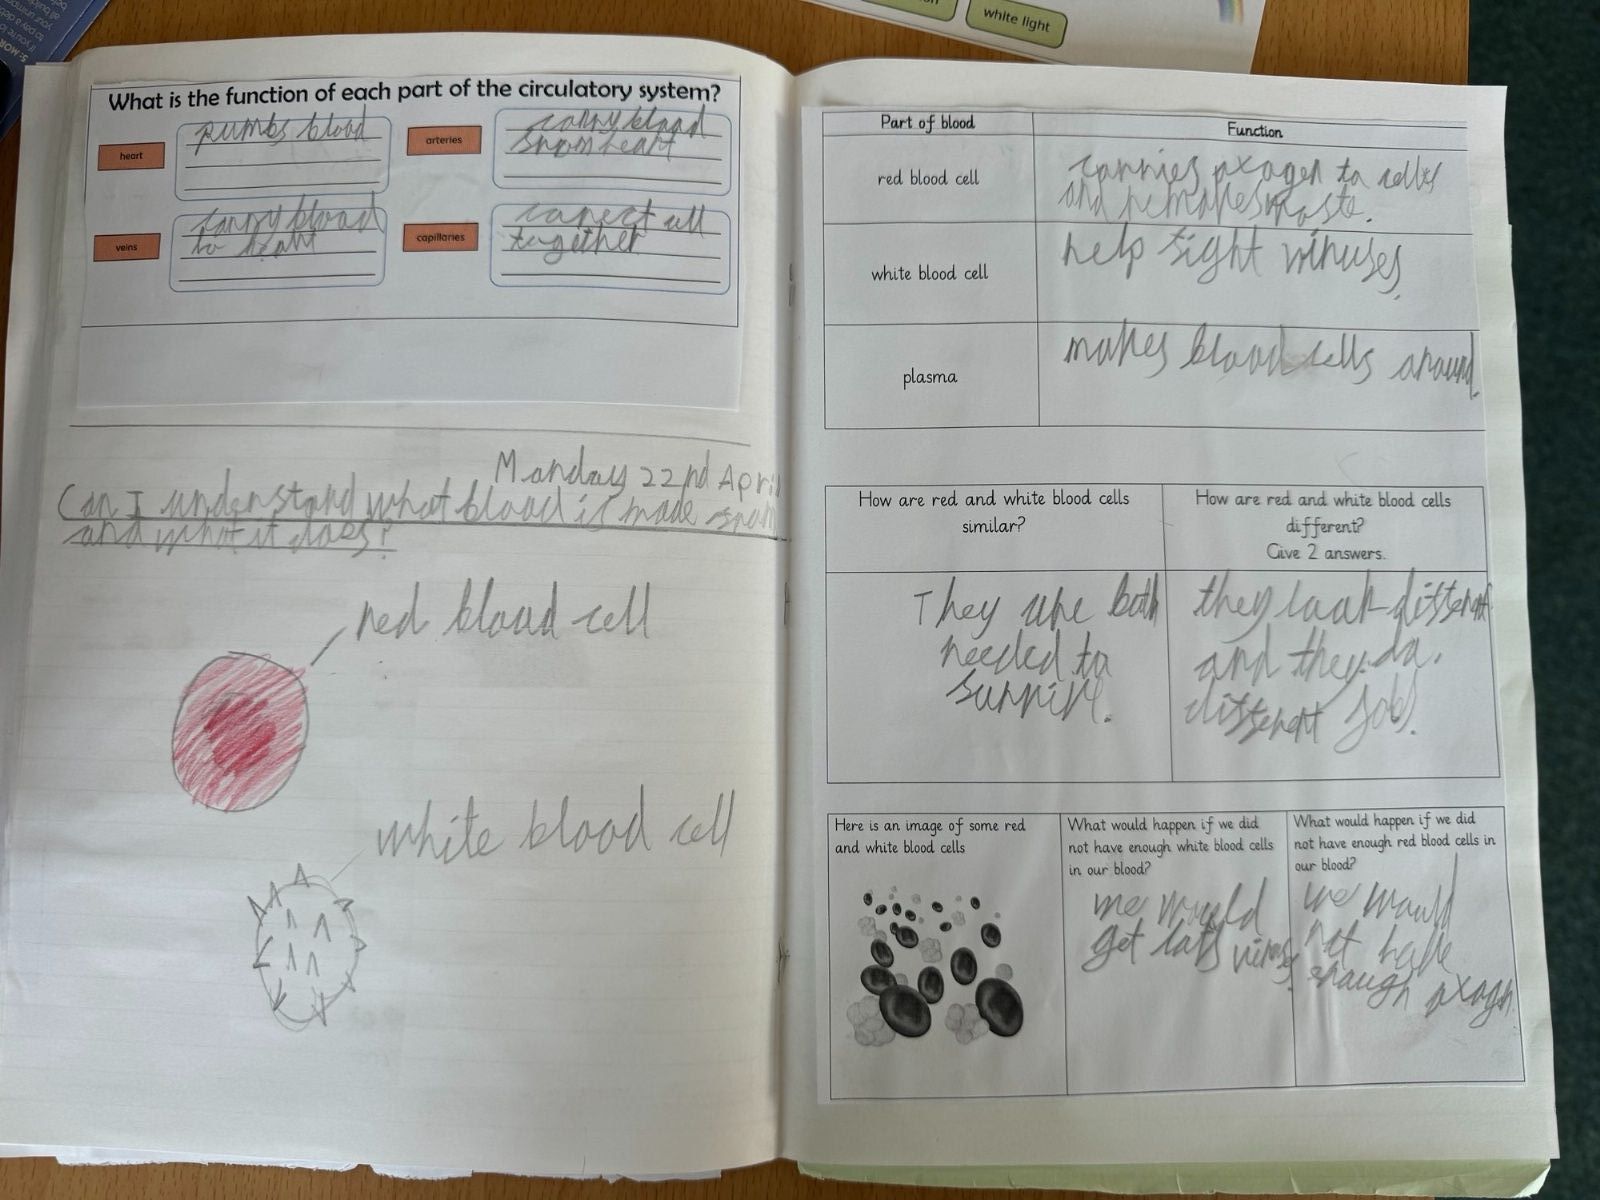 white light
What is the function of each part of the circulatory system?
heart
pumbs blood
arteries
carry blood
from heart
veins
carry blood
to heart
capillaries
conect all
together
Monday 22nd April
Can I understand what blood is made from
and what it does?
red blood cell
white blood cell
Part of blood
Function
red blood cell
carries oxagen to cells
and removes waste.
white blood cell
help fight viruses.
plasma
moves blood cells around.
How are red and white blood cells
similar?
How are red and white blood cells
different?
Give 2 answers.
They are both
needed to
survive.
they look different
and they do.
different jobs.
Here is an image of some red
and white blood cells
What would happen if we did
not have enough white blood cells
in our blood?
we would
get lots viruses.
What would happen if we did
not have enough red blood cells in
our blood?
we would
not have
enough oxagen.